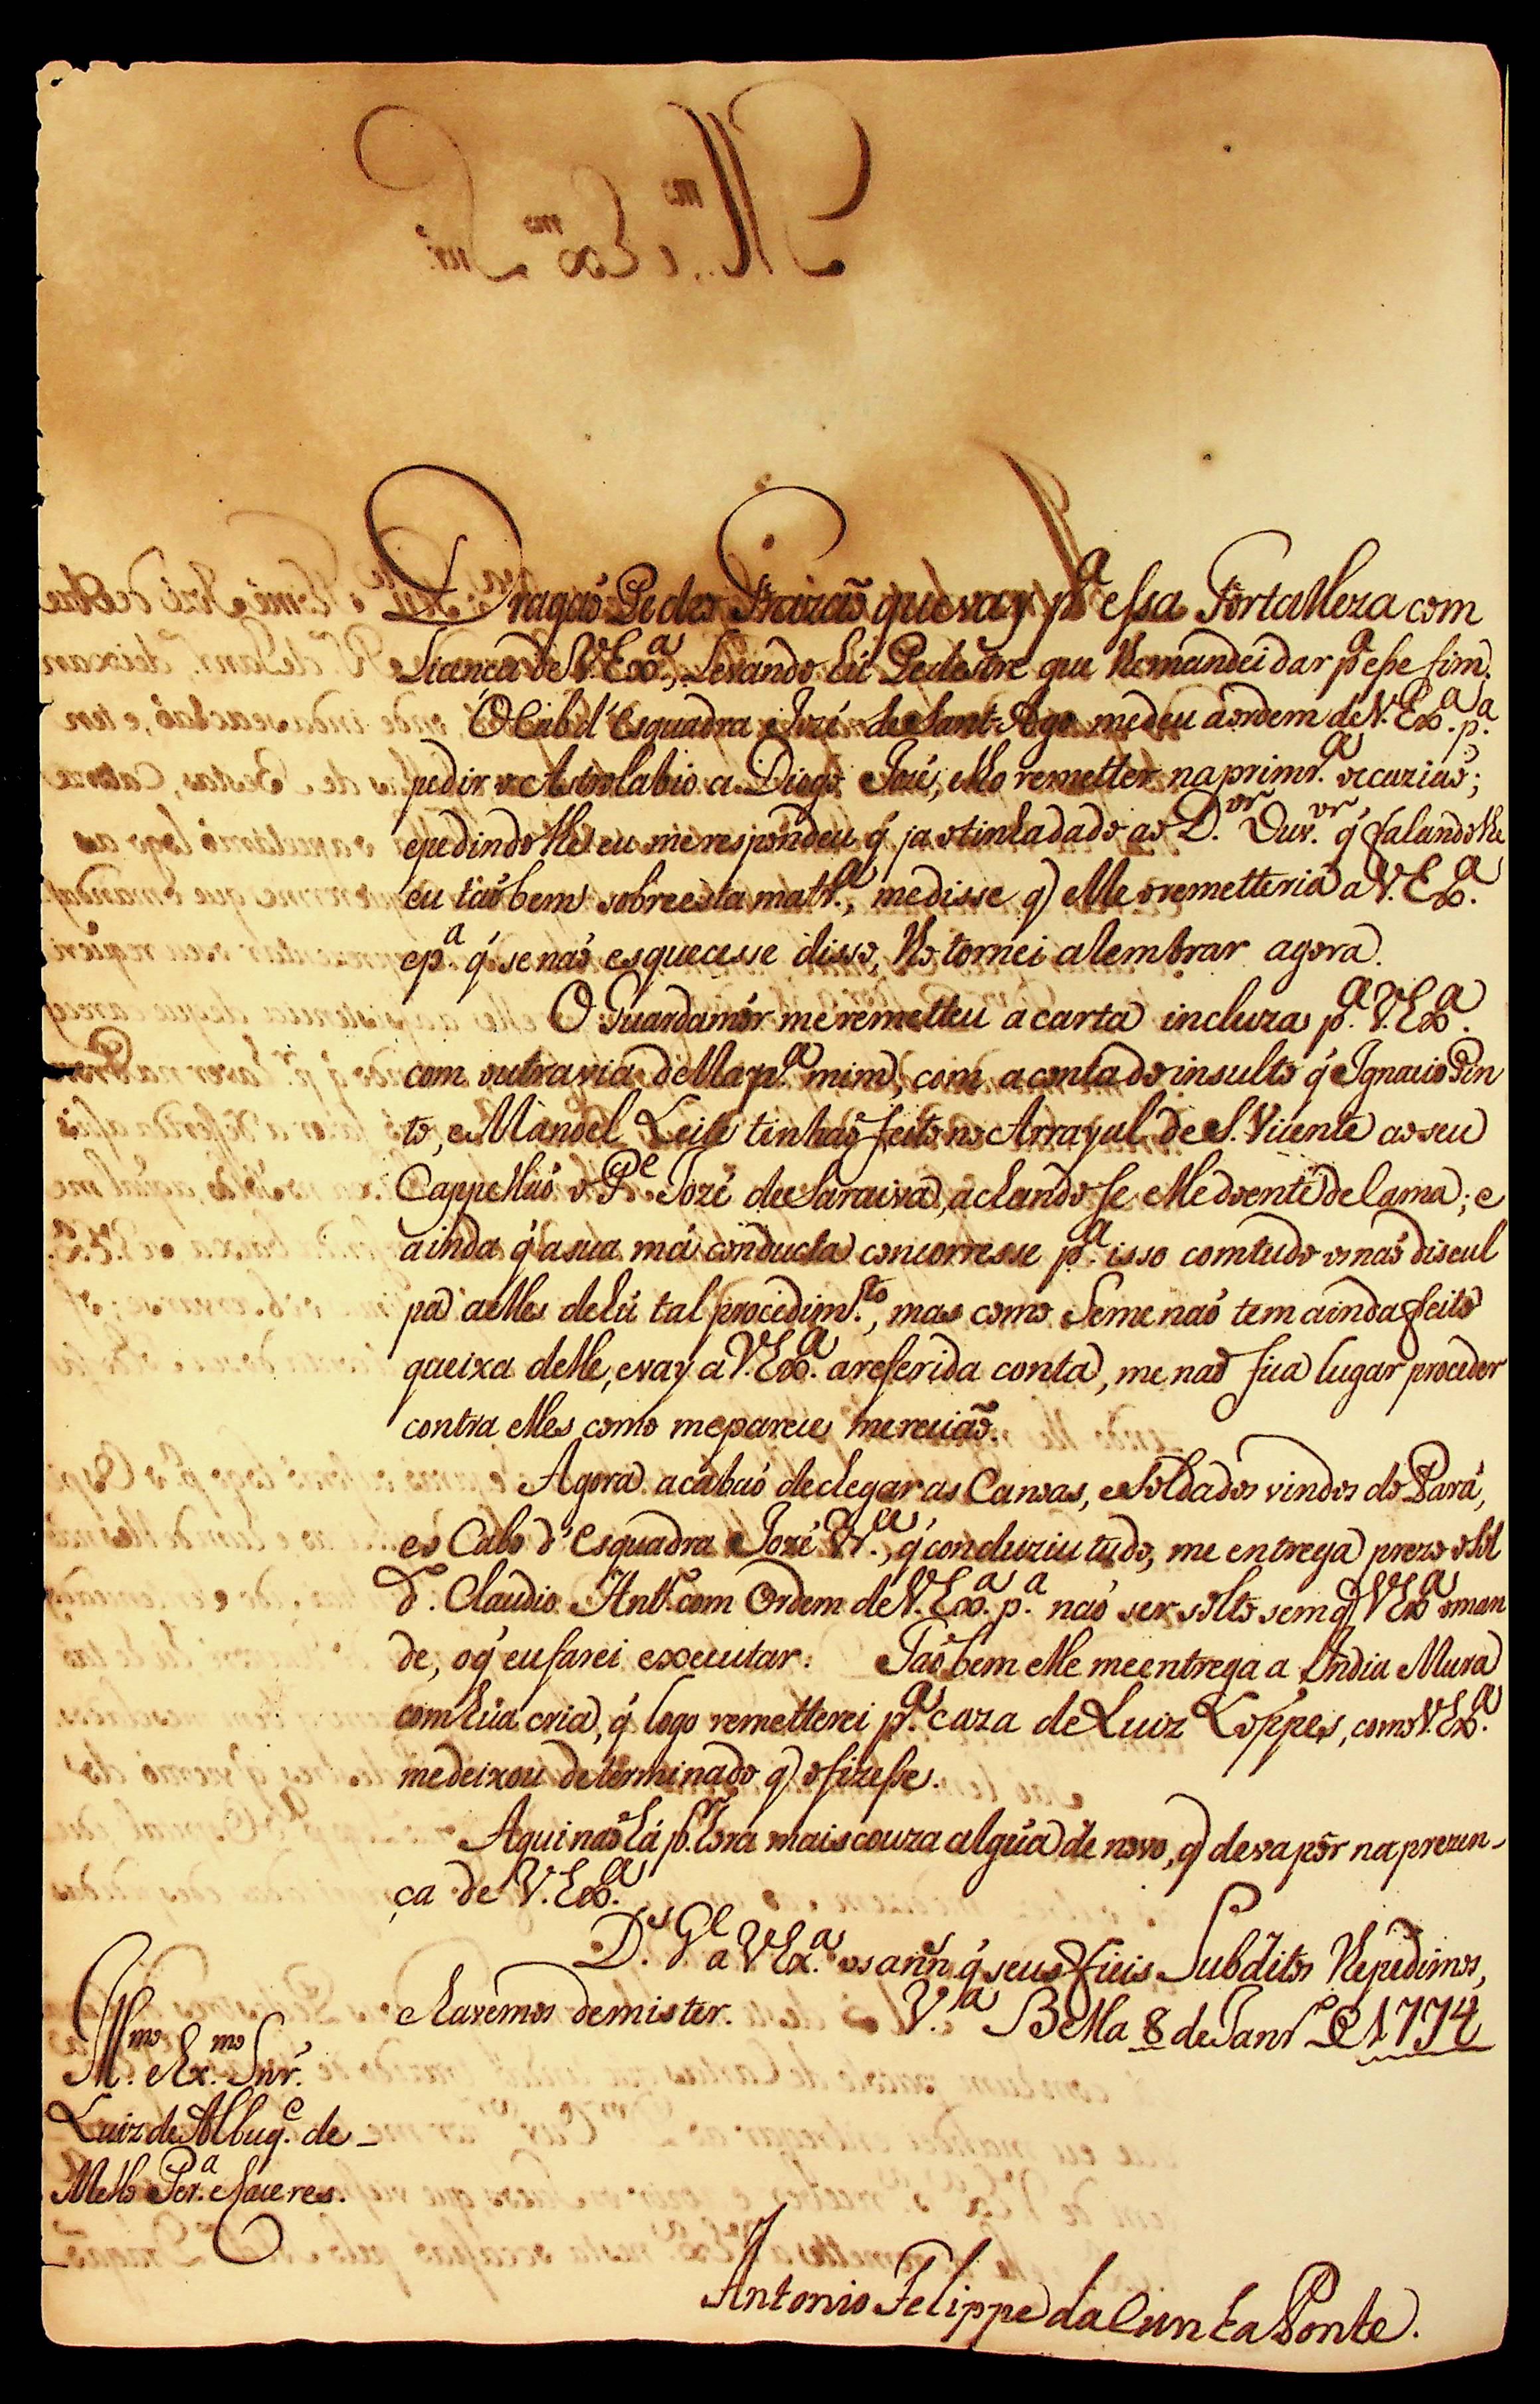 Dragaõ Pedro Frazaõ que vay p.ª essa Fortalleza com
Licença de V. Ex.ª, Levando hũ Pedestre que lhe mandei dar p.ª esse fim.
O Cab d'Esquadra Jozé de Sant-Ago me deu a ordem de V. Ex.ª p.ª
pedir o Astrolabio a Diogo Jozé, e lho remetter na primr.ª occaziaõ;
e pedindo lhe eu me respondeu q̃ ja o tinha dado ao D.or Ouv.or q̃ falando lhe
eu taõ bem sobre esta matr.ª, me disse q̃ elle o remetteria a V. Ex.ª
e p.ª q̃ se naõ esquecesse disso, lho tornei a lembrar agora.
O Guardamór me remetteu a carta incluza p.ª V. Ex.ª
com outra via della p.ª mim, com a conta do insulto q̃ Ignacio Pin
to, e Manoel Leite tinhaõ feito no Arrayal de S. Vicente ao seu
Cappellaõ o P.e Jozé de Saraiva, achando se elle doente de cama; e
ainda q̃ a sua má conducta concorresse p.ª isso com tudo o naõ discul
pa a elles de hũ tal procedim.to, mas como Se me naõ tem ainda feito
queixa delle, e vay a V. Ex.ª a referida conta, me naõ fica lugar proceder
contra elles como me parece mereciaõ.
Agora acabaõ de chegar as Canoas, e Soldados vindos do Pará,
e o Cabo d'Esquadra Jozé V.ra, q̃ conduziu tudo, me entrega prezo o Sol
d.º Claudio Ant.º com Ordem de V. Ex.ª p.ª naõ ser solto sem q̃ V Ex.ª o man
de, o q̃ eu farei executar. Taõ bem elle me entrega a India Mura
com hũa cria, q̃ logo remetterei p.ª caza de Luiz Loppes, como V. Ex.ª
me deixou determinado q̃ o fizesse.
Aqui naõ há p.r hora mais couza algũa de novo, q̃ deva pôr na prezen-
ça de V. Ex.ª
D.s G.e a V Ex.ª os ann. q̃ seus fieis Subditos lhe pedimos,
e havemos de mister. V.ª Bella 8 de Janr.º de 1774
Ill.mo e Ex.mo Snr.
Luiz de Albuq.e de-
Mello Per.ª e Caceres.
Antonio Felippe da Cunha Ponte.